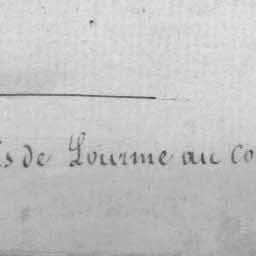 ls de Lourme au co